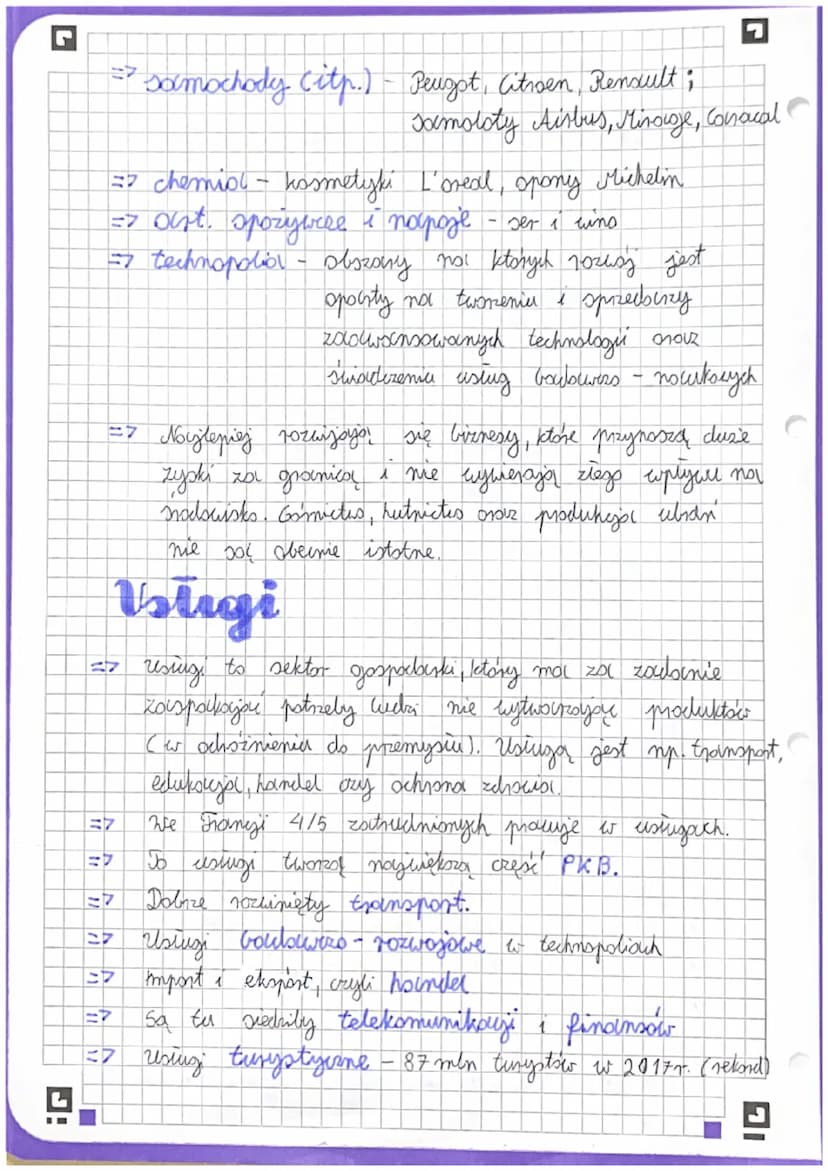 => samochody (itp.) - Peugot, Citroen, Renault;
samoloty Airbus, Mirage, Caracal
=> chemia - kosmetyki L'oreal, opony Michelin
=> art. spożywcze i napoje - ser i wino
=> technopolia - obszary na których rozwój jest
oparty na tworzeniu i sprzedaży
zaawansowanych technologii oraz
świadczeniu usług badawczo - naukowych
=> Najlepiej rozwijają się biznesy, które przynoszą duże
zyski za granicą i nie wywierają złego wpływu na
środowisko. Górnictwo, hutnictwo oraz produkcja ubrań
nie są obecnie istotne.
Usługi
=> Usługi to sektor gospodarki, który ma za zadanie
zaspokajać potrzeby ludzi nie wytwarzając produktów
(w odróżnieniu do przemysłu). Usługą jest np. transport,
edukacja, handel czy ochrona zdrowia.
=> We Francji 4/5 zatrudnionych pracuje w usługach.
=> To usługi tworzą największą część PKB.
=> Dobrze rozwinięty transport.
=> Usługi badawczo - rozwojowe w technopoliach
=> Import i eksport, czyli handel
=> Są tu siedziby telekomunikacji i finansów
=> Usługi turystyczne - 87 mln turystów w 2017r. (rekord)